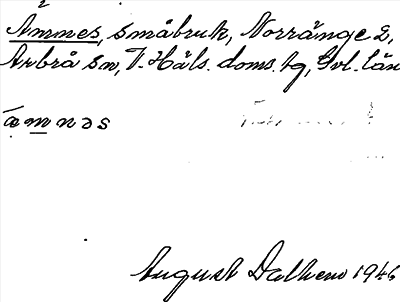 Ämmes, småbruk, Norränge 2,
Arbrå sn, V. Häls. doms. tg, Gvl. län
ämnəs
August Dalhem 1946